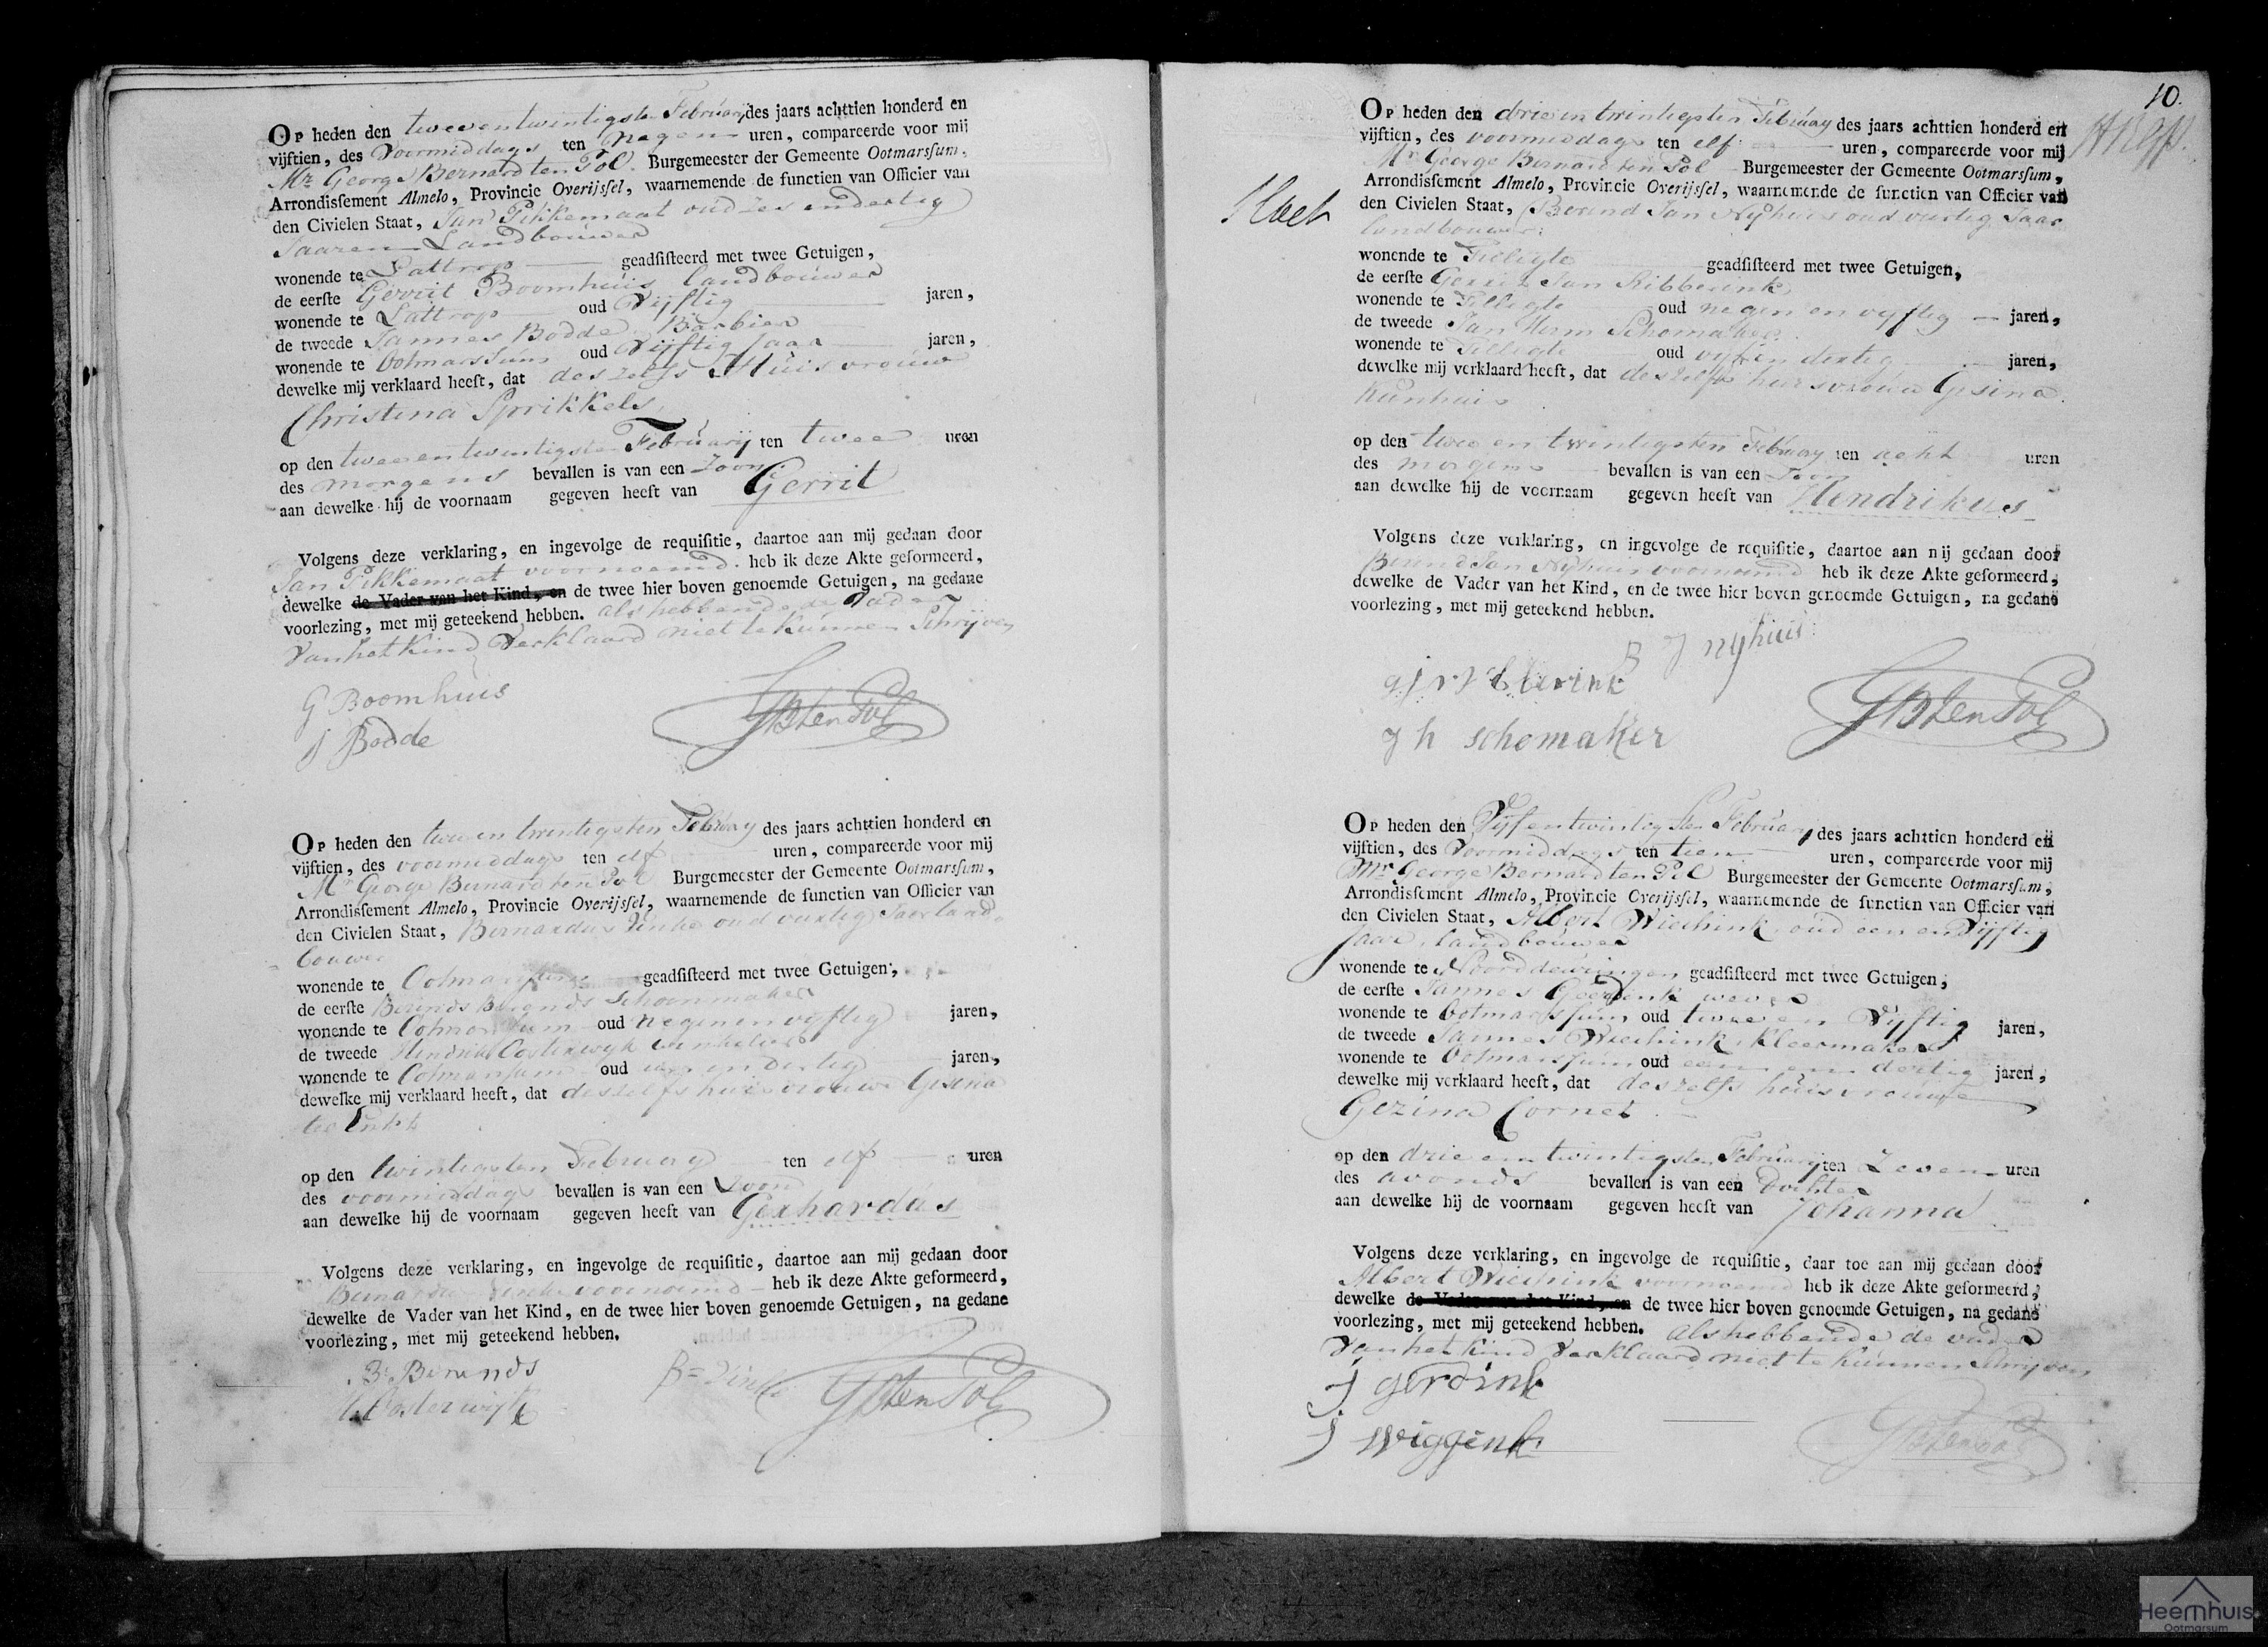 Op heden den tweeentwintigste Februarij des jaars achttien honderd en
vijftien, des Voormiddags ten negen uren, compareerde voor mij
Mr. George Bernard ten Pol. Burgemeester der Gemeente Ootmarssum,
Arrondissement Almelo, Provincie Overijssel, waarnemende de functien van Officier van
den Civielen Staat, Jan Pikkemaat oud zes en dertig
Jaaren Landbouwer
wonende te Lattrop geadsisteerd met twee Getuigen,
de eerste Gerrit Boomhuis landbouwer
wonende te Lattrop oud Vijftig jaren,
de tweede Jannes Bodde Barbier
wonende te Ootmarssum oud Vijftig Jaar jaren,
dewelke mij verklaard heeft, dat deszelfs Huisvrouw
Christina Sprikkels,
op den tweeentwintigste Februarij ten twee uren
des morgens bevallen is van een Zoon
aan dewelke hij de voornaam gegeven heeft van Gerrit
Volgens deze verklaring, en ingevolge de requisitie, daartoe aan mij gedaan door
Jan Pikkemaat voornoemd. heb ik deze Akte geformeerd,
dewelke de Vader van het Kind, en de twee hier boven genoemde Getuigen, na gedane
voorlezing, met mij geteekend hebben. als hebbende de Vader
van het Kind Verklaard niet te kunnen Schrijven
G Boomhuis
J Bodde
GB ten Pol
Op heden den twee en twintigsten Februarij des jaars achttien honderd en
vijftien, des voormiddags ten elf uren, compareerde voor mij
Mr George Bernard ten Pol Burgemeester der Gemeente Ootmarssum,
Arrondissement Almelo, Provincie Overijssel, waarnemende de functien van Officier van
den Civielen Staat, Bernardus oud veertig Jaar land
bouwer
wonende te Ootmarssum geadsisteerd met twee Getuigen,
de eerste Berends Berends Schoenmaker
wonende te Ootmarssum oud negen en vyftig jaren,
de tweede Hendrik Oosterwyk
wonende te Ootmarssum oud en dertig jaren,
dewelke mij verklaard heeft, dat deszelfs huisvrouwe Gesina
op den twintigsten February ten elf uren
des voormiddags bevallen is van een Zoon
aan dewelke hij de voornaam gegeven heeft van Gerhardus
Volgens deze verklaring, en ingevolge de requisitie, daartoe aan mij gedaan door
Bernardus voornoemd heb ik deze Akte geformeerd,
dewelke de Vader van het Kind, en de twee hier boven genoemde Getuigen, na gedane
voorlezing, met mij geteekend hebben.
B: Berends
H. Oosterwijk
GB ten Pol
10.
Op heden den drie en twintigsten February des jaars achttien honderd en
vijftien, des voormiddags ten elf uren, compareerde voor mij
Mr George Bernard ten Pol Burgemeester der Gemeente Ootmarssum,
Arrondissement Almelo, Provincie Overijssel, waarnemende de functien van Officier van
den Civielen Staat, Berend Jan Nyhuis oud veertig Jaar
landbouwer:
wonende te Tilligte geadsisteerd met twee Getuigen,
de eerste Gerrit Jan Ribberink
wonende te Tilligte oud negen en vyftig jaren,
de tweede Jan Herm Schomaker
wonende te Tilligte oud vyf en dertig jaren,
dewelke mij verklaard heeft, dat deszelfs huisvrouw Gesina
Kunhuis
op den twee en twintigsten February ten acht uren
des morgens bevallen is van een Zoon
aan dewelke hij de voornaam gegeven heeft van Hendrikus
Volgens deze verklaring, en ingevolge de requisitie, daartoe aan mij gedaan door
Berend Jan Nyhuis voornoemd heb ik deze Akte geformeerd,
dewelke de Vader van het Kind, en de twee hier boven genoemde Getuigen, na gedane
voorlezing, met mij geteekend hebben.
B J nyhuis
g j ribberink
j h schomaker
GB ten Pol
Op heden den Vijfentwintigsten Februarij des jaars achttien honderd en
vijftien, des Voormiddags ten tien uren, compareerde voor mij
Mr. George Bernard ten Pol Burgemeester der Gemeente Ootmarssum,
Arrondissement Almelo, Provincie Overijssel, waarnemende de functien van Officier van
den Civielen Staat, Albert Wiechink oud een en Vijftig
Jaar, landbouwer
wonende te Noorddeuringen geadsisteerd met twee Getuigen,
de eerste Jannes Geerdink wever
wonende te Ootmarssum oud twee en Vijftig jaren,
de tweede Jannes Wiechink kleermaker
wonende te Ootmarssum oud een en dertig jaren,
dewelke mij verklaard heeft, dat deszelfs huisvrouwe
Gezina Cornel
op den drie en twintigsten Februarij ten Zeven uren
des avonds bevallen is van een Dochter
aan dewelke hij de voornaam gegeven heeft van Johanna
Volgens deze verklaring, en ingevolge de requisitie, daar toe aan mij gedaan door
Albert Wiechink voornoemd heb ik deze Akte geformeerd,
dewelke de Vader van het Kind, en de twee hier boven genoemde Getuigen, na gedane
voorlezing, met mij geteekend hebben. als hebbende de vader
van het Kind Verklaard niet te kunnen Schrijven
j gerdink
j wiggink
GB ten Pol
Heemhuis
Ootmarsum